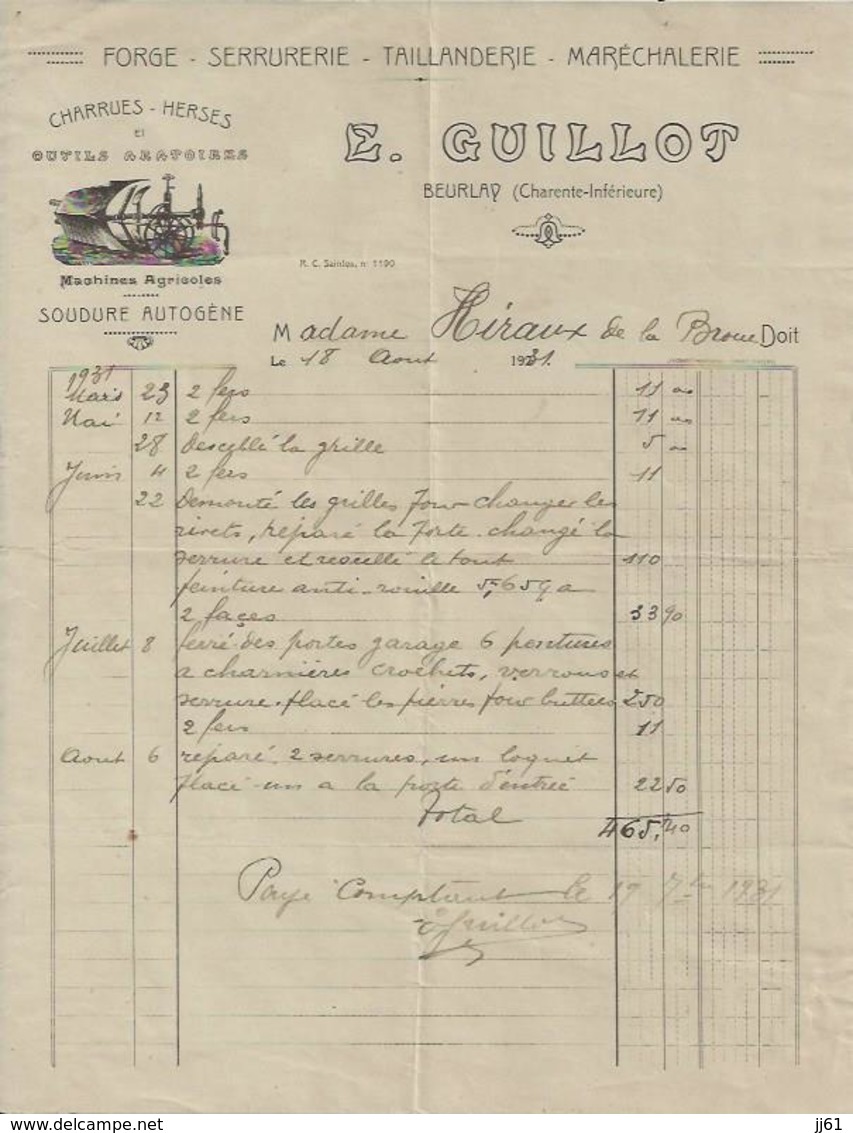 FORGE - SERRURERIE - TAILLANDERIE - MARÉCHALERIE
CHARRUES - HERSES
ET
OUTILS ARATOIRES
Machines Agricoles
SOUDURE AUTOGÈNE
E. GUILLOT
BEURLAY (Charente-Inférieure)
R. C. Saintes, n° 1190
Madame Hiraux de la Broue Doit
Le 18 Aout 1931.
1931
Mars 23 2 fers 11 "
Mai 12 2 fers 11 "
28 Descellé la grille 5 "
Juin 4 2 fers 11
22 Demonté les grilles pour changer les
rivets, réparé la porte changé la
serrure et recellé le tout 110
peinture anti-rouille 5,65 q a
2 façes 33 90
Juillet 8 ferré des portes garage 6 pentures
a charnières crochets, verrous et
serrure placé les pierres pour buttées 250
2 fers 11
Aout 6 reparé 2 serrures, un loquet
placé un a la porte d'entrée 22 50
Total 465,40
Payé Comptant le 19 7bre 1931
E Guillot
jj61